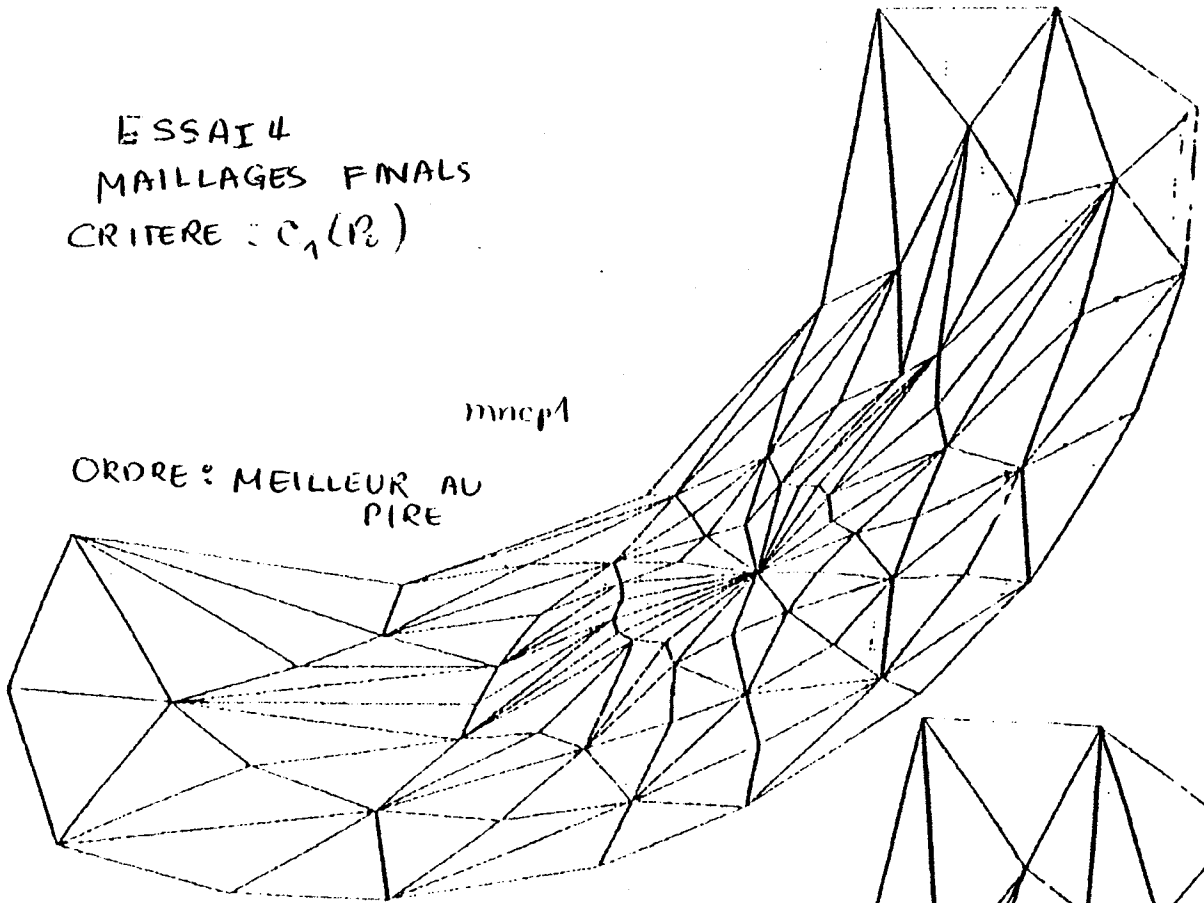 ESSAI 4
MAILLAGES FINALS
CRITERE : C₁(Pi)
mncp1
ORDRE : MEILLEUR AU
PIRE